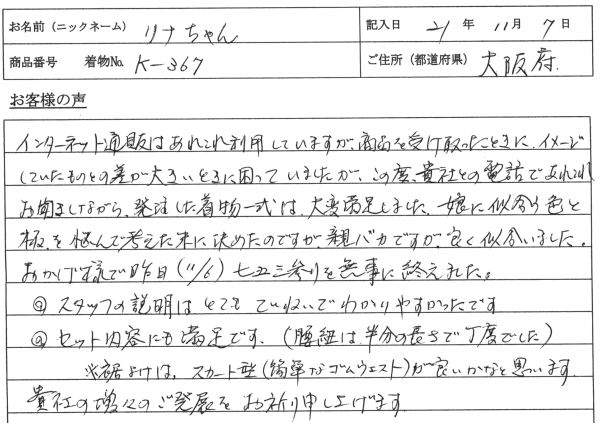 お名前(ニックネーム) リナちゃん 記入日 21 年 11 月 7 日
商品番号 着物No. K-367 ご住所(都道府県) 大阪府.
お客様の声
インターネット通販はあれこれ利用していますが、商品を受け取ったときに、イメージ
していたものとの差が大きいときに困っていましたが、この度、貴社との電話であれこれ
お聞きしながら、発注した着物一式は、大変満足しました。娘に似合う色と
柄を悩んで考えた末に決めたのですが親バカですが、良く似合いました。
おかげ様で昨日(11/6)七五三参りを無事に終えました。
◎スタッフの説明はとてもていねいでわかりやすかったです
◎セット内容にも満足です。(腰紐は半分の長さで丁度でした)
※裾よけは、スカート型(簡単なゴムウェスト)が良いかなと思います.
貴社の増々のご発展をお祈り申し上げます.